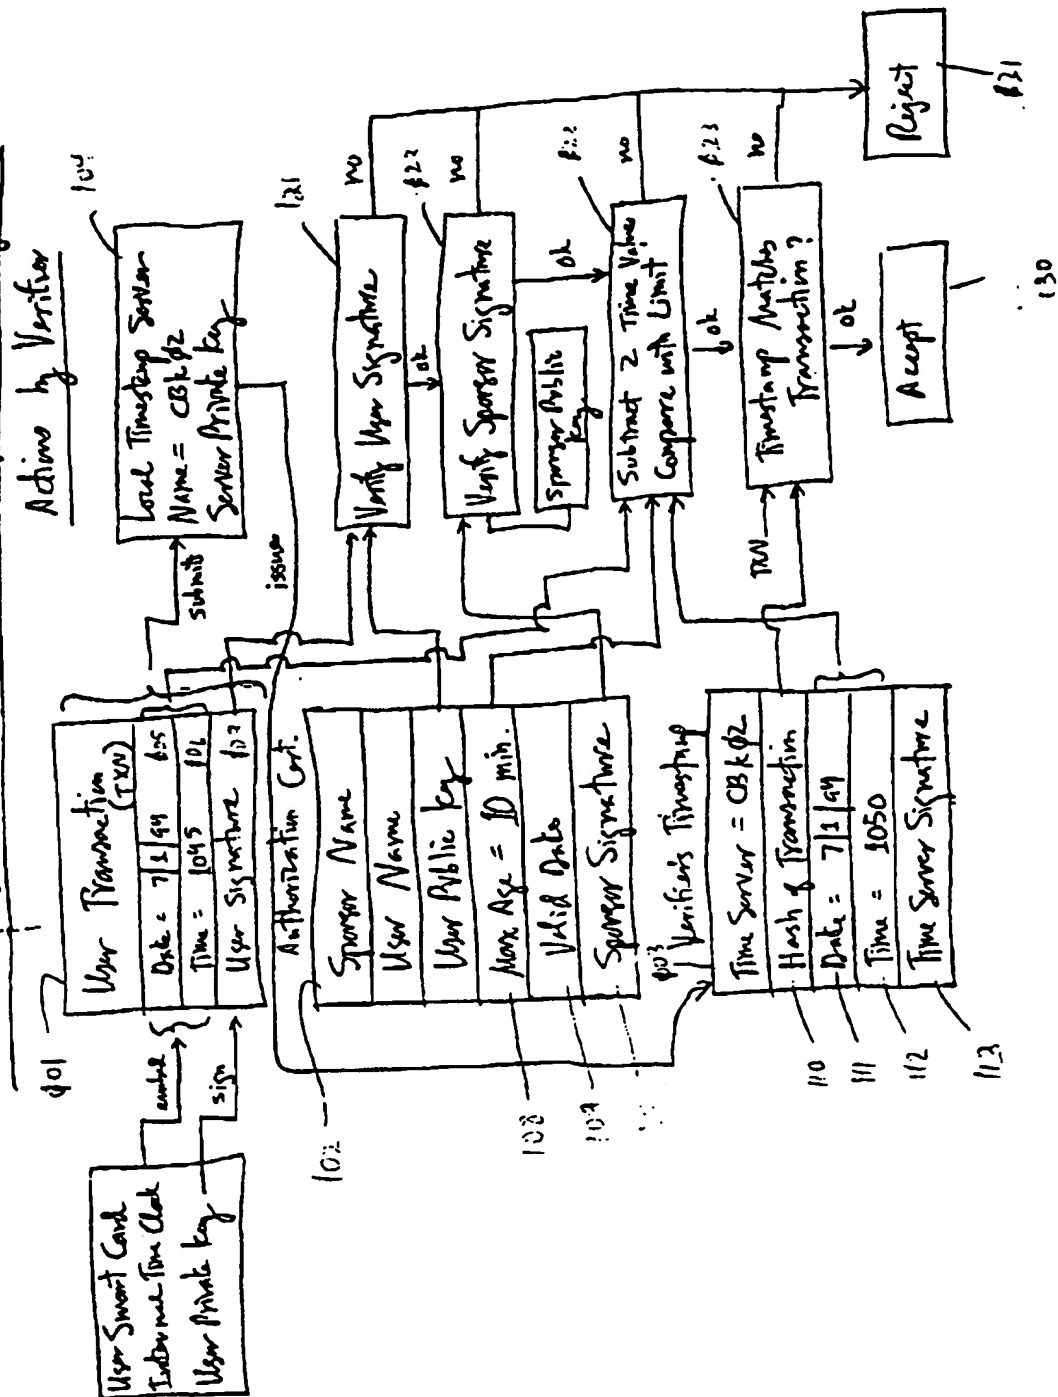 Actions by Verifier
User Smart Card
Internal Time Clock
User Private Key
embed
sign
User Transaction
(TXN)
Date = 7/1/94
Time = 1045
User Signature
submits
Local Timestamp Server
Name = CBkφ2
Server Private Key
104
issues
Authorization Cert.
102
Sponsor Name
User Name
User Public Key
Max Age = 10 min.
Valid Date
Sponsor Signature
Verifier's Timestamp
Time Server = CBkφ2
Hash of Transaction
Date = 7/1/94
Time = 1050
Time Server Signature
110
111
112
113
Verify User Signature
121
no
ok
Verify Sponsor Signature
no
ok
Sponsor Public
Key
Subtract 2 Time Value
Compare with Limit
no
ok
TXN
Timestamp Matches
Transaction?
no
ok
Accept
130
Reject